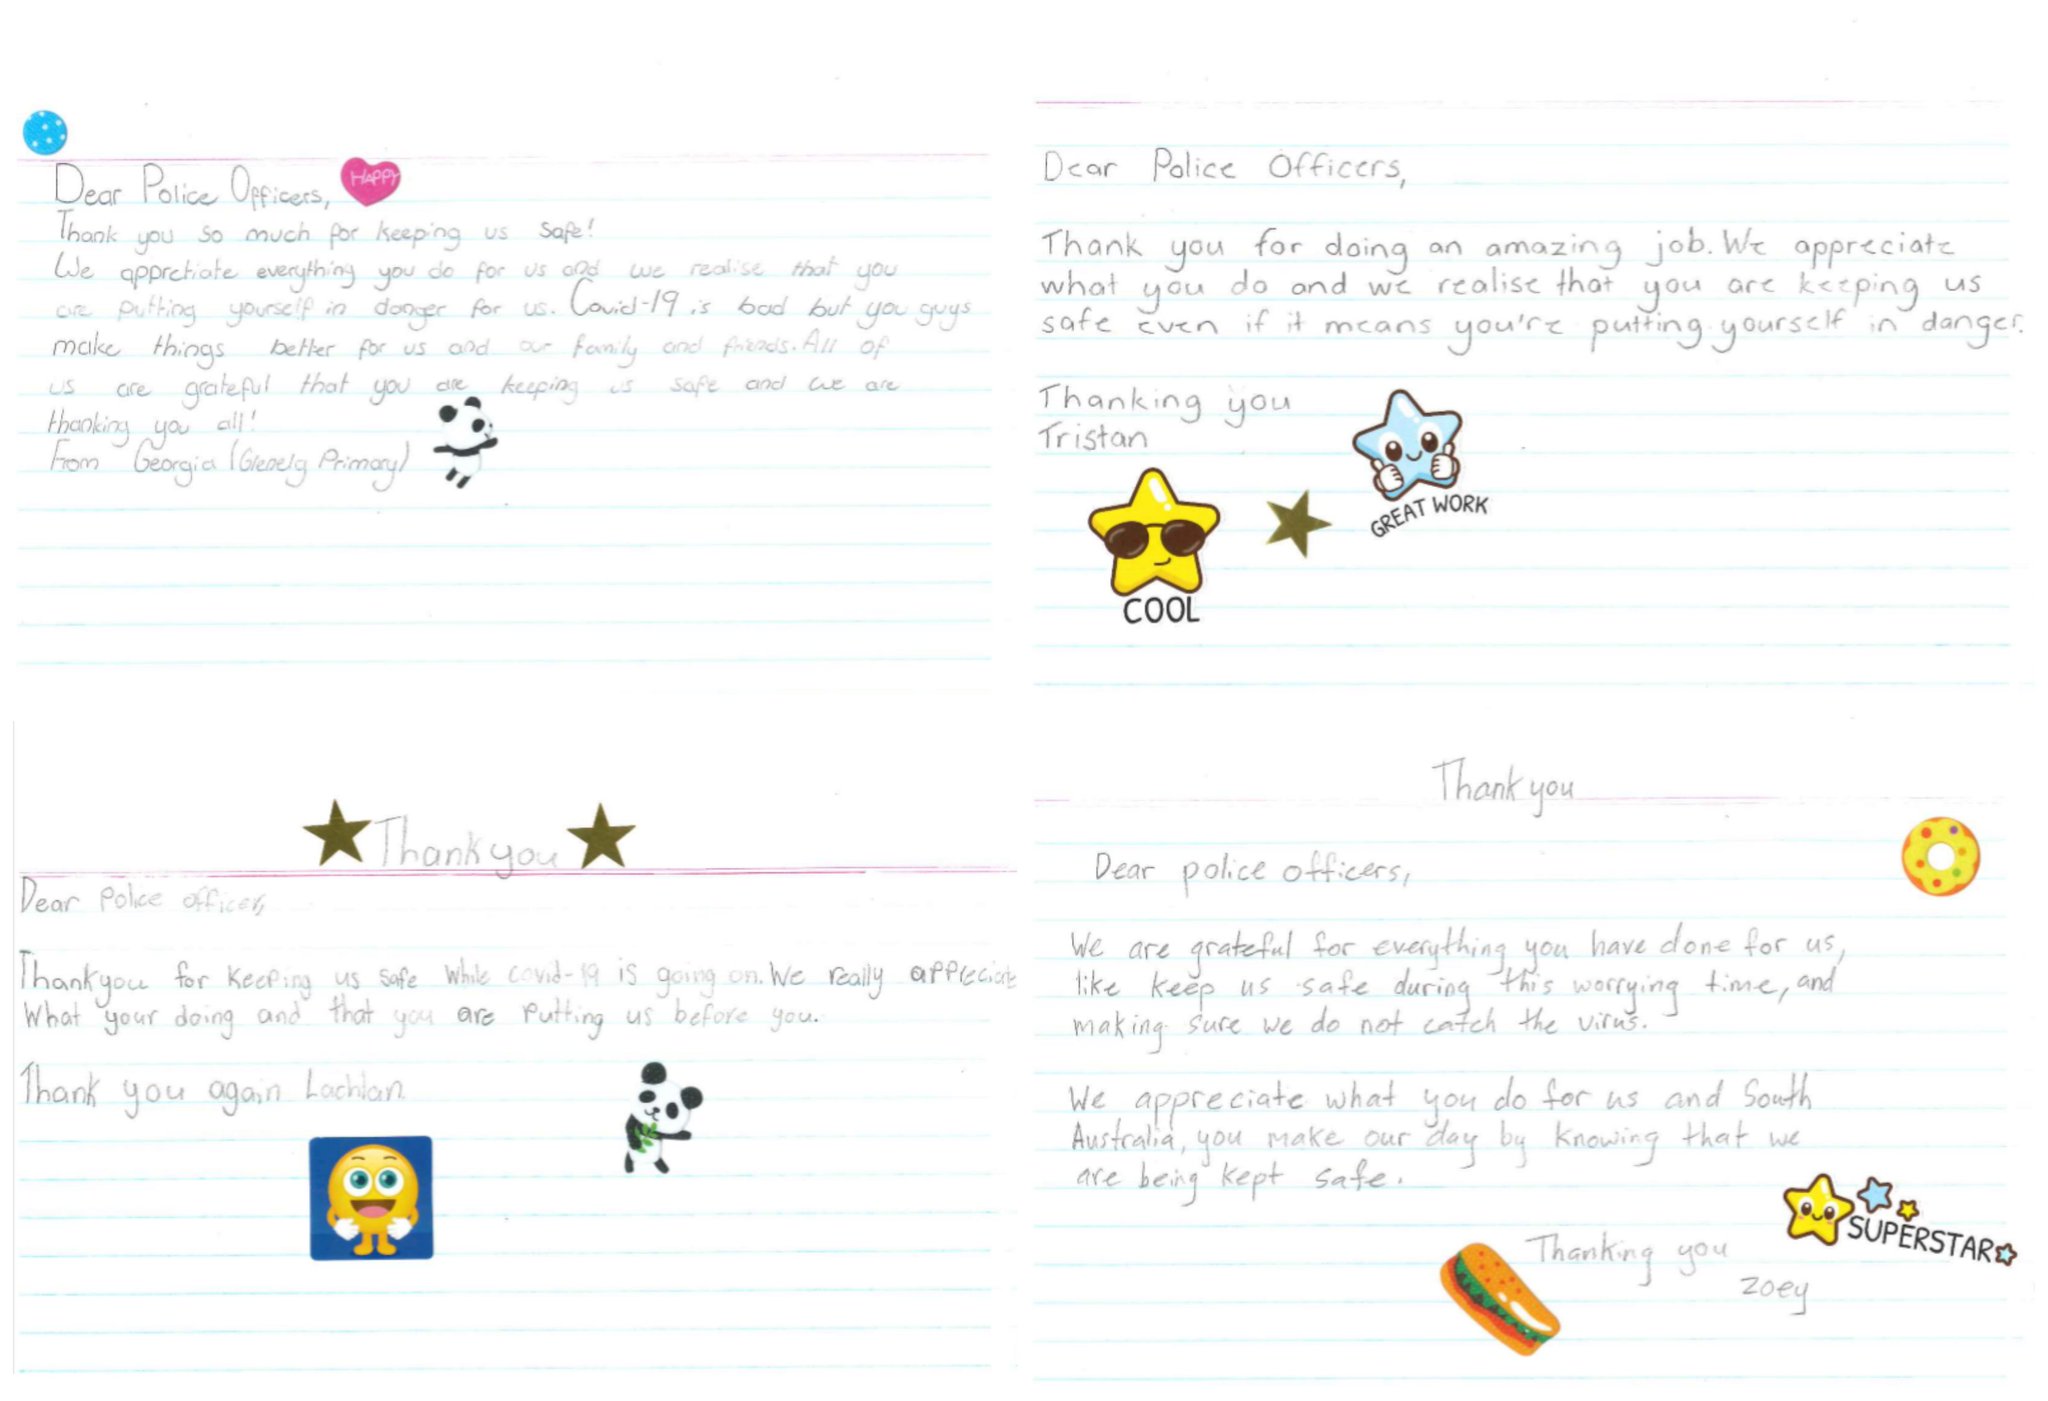 Dear Police Officers,
HAPPY
Thank you so much for keeping us safe!
We appretiate everything you do for us and we realise that you
are putting yourself in danger for us. Covid-19 is bad but you guys
make things better for us and our family and friends. All of
us are grateful that you are keeping us safe and we are
thanking you all!
From Georgia (Glenelg Primary)
Dear Police Officers,
Thank you for doing an amazing job. We appreciate
what you do and we realise that you are keeping us
safe even if it means you're putting yourself in danger.
Thanking you
Tristan
GREAT WORK
COOL
Thankyou
Dear Police officer,
Thankyou for keeping us safe while covid-19 is going on. We really appreciate
What your doing and that you are putting us before you.
Thank you again Lachlan.
Thank you
Dear police officers,
We are grateful for everything you have done for us,
like keep us safe during this worrying time, and
making sure we do not catch the virus.
We appreciate what you do for us and South
Australia, you make our day by knowing that we
are being kept safe.
SUPERSTAR
Thanking you
Zoey